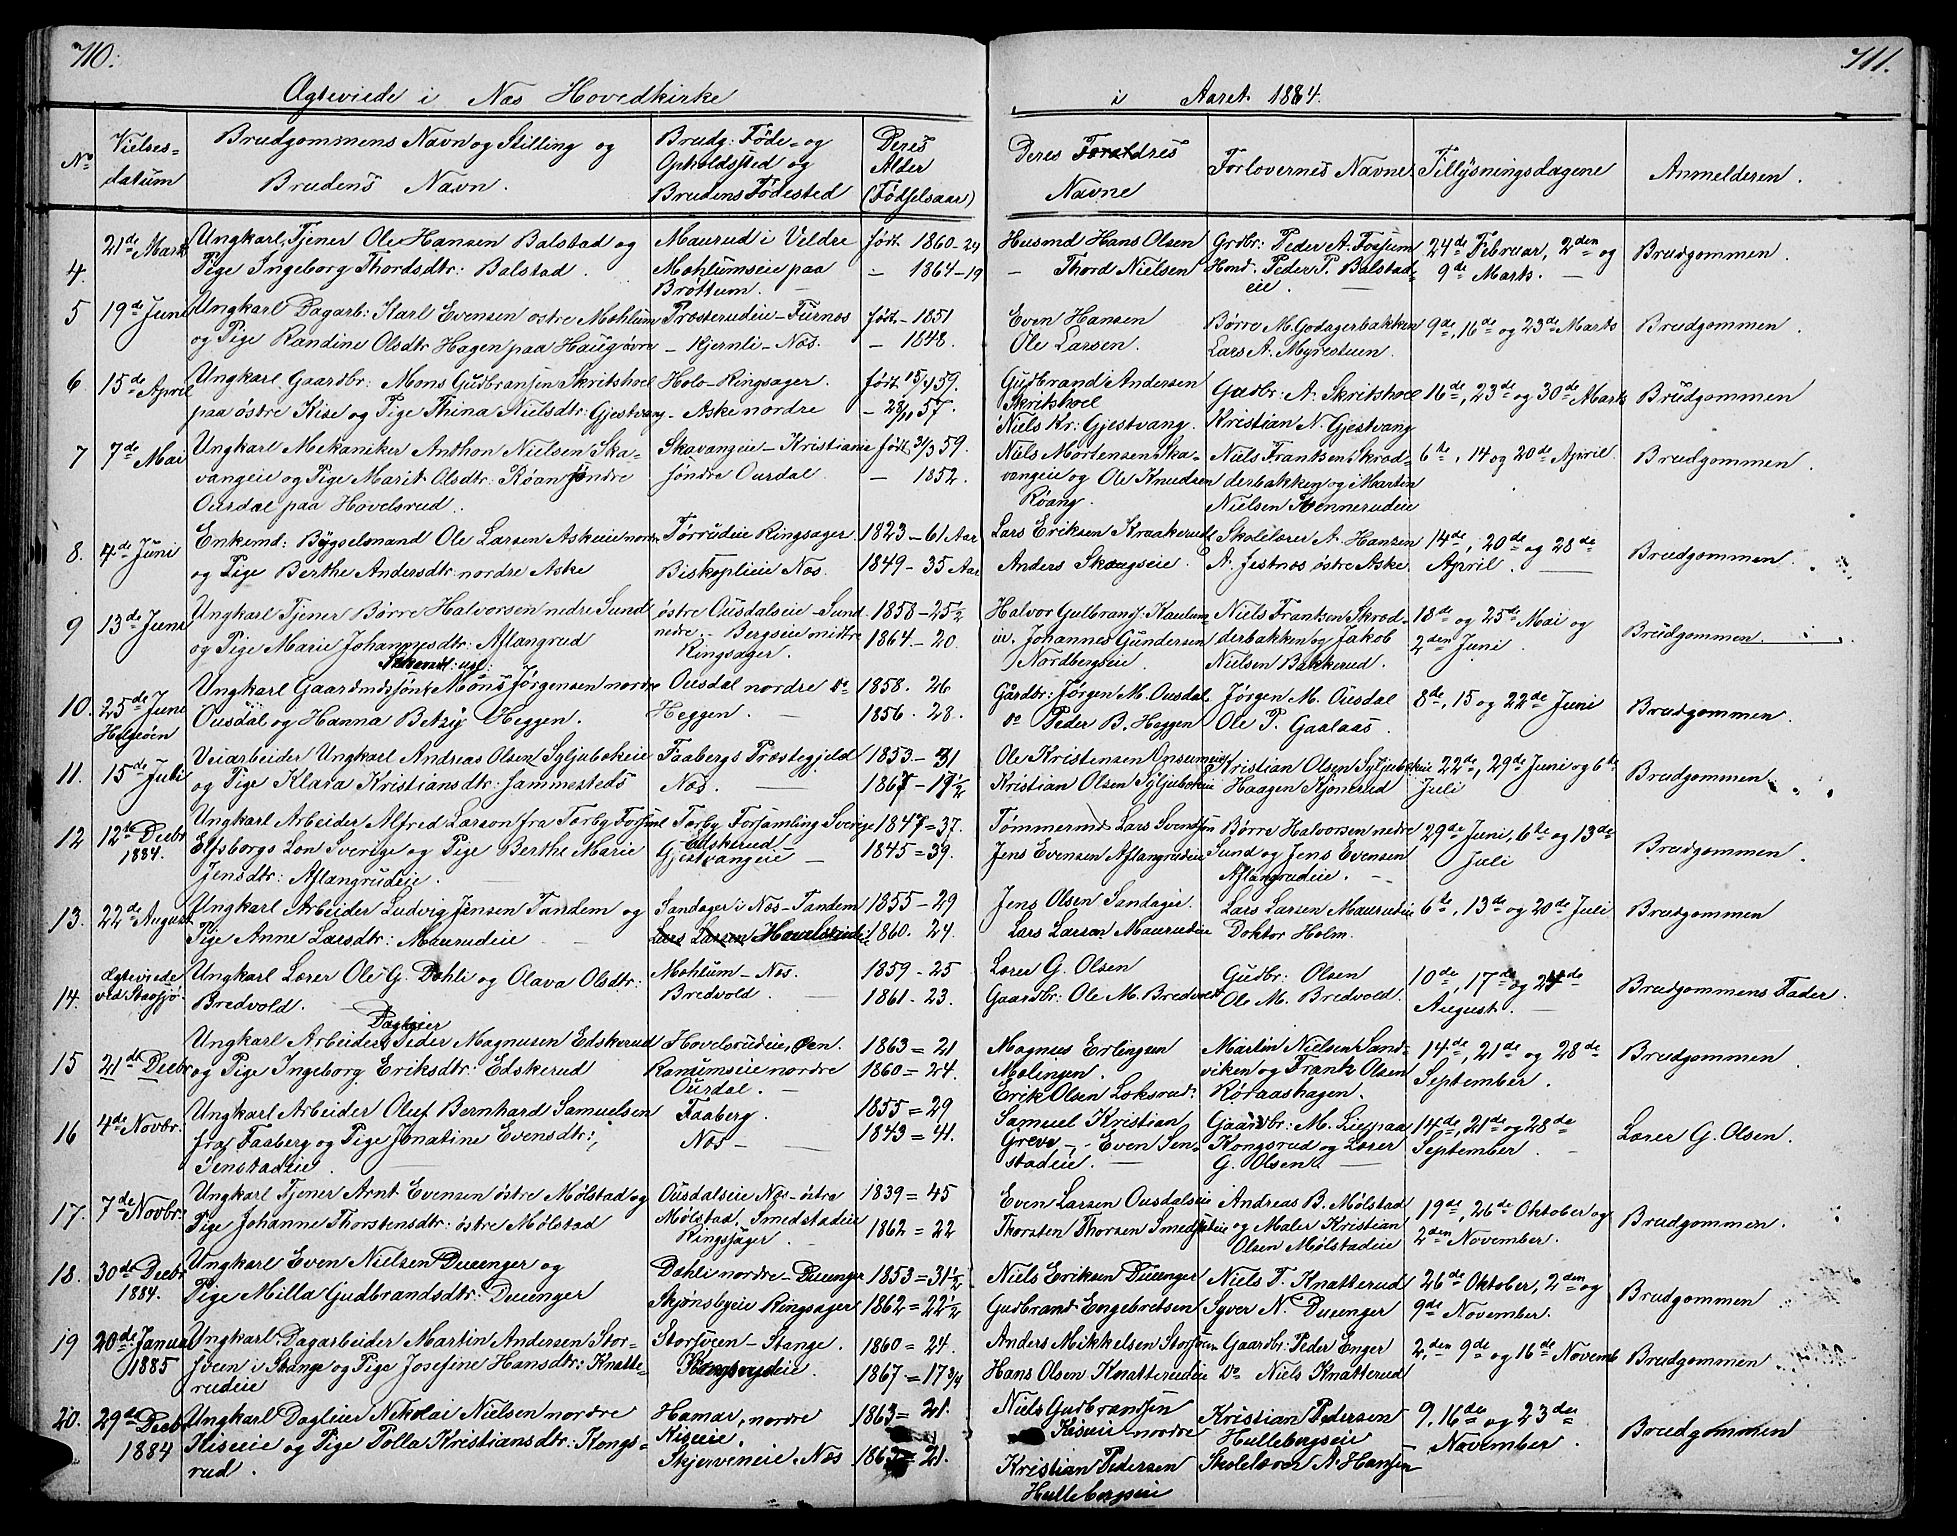 710.
711.
Ægteviede i Næs Hovedkirke
i Aaret 1884.
No
Vielses-
datum
Brudgommens Navn og Stilling og
Brudens Navn.
Brudg: Føde- og
Opholdssted og
Brudens Fødested
Deres
Alder
(Fødselsaar)
Deres Forældres
Navne
Forlovernes Navne
Tillysningsdagene
Anmelderen.
4.
21de Marts
Ungkarl, Tjener Ole Hansen Balstad og
Pige Ingeborg Thordsdtr: Balstad.
Maurud i Veldre
Mæhlumseie paa
Brøttum.
født 1860-24
- 1864-19
Husmd Hans Olsen
- Thord Nielsen
Grdbr: Peder A. Fossum
Hmd. Peder P. Balstad-
eie.
24de Februar, 2den og
9de Marts.
Brudgommen.
5
19de Juni
Ungkarl Dagarb: Karl Evensen østre Mæhlum
og Pige Randine Olsdtr Hagen paa Haugsøvre
Præsterudeie-Furnæs
- Kjernli-Næs.
født- 1851
- 1848.
Even Hansen
Ole Larsen.
Børre M. Godagerbakken
Lars A. Myrestuen.
9de, 16de og 23de Marts
Brudgommen.
6
15de April
Ungkarl Gaardbr: Mons Gudbransen Skritshoel
paa østre Kise og Pige Thina Nielsdtr: Gjestvang
Holo-Ringsager.
- Aske nordre
født 15/4 59.
- 23/11 57.
Gudbrand Andersen
Skritshoel
Niels Kr: Gjestvang.
Gadbr: A. Skritshoel
Kristian N. Gjestvang
16de, 23de og 30de Marts
Brudgommen
7
7de Mai
Ungkarl Mekaniker Anthon Nielsen Ska-
vangeie og Pige Marit Olsdtr: Røang søndre
Ousdal paa Hovelsrud.
Skavangeie-Kristiania
søndre Ousdal
født 31/3 59.
- 1852.
Niels Mortensen Ska-
vangeie og Ole Knudsen
Røang.
Niels Frantsen Skrød-
derbakken og Martin
Nielsen Stennerudeie
6te, 14 og 20de April.
Brudgommen.
8.
4de Juni
Enkemd: Bygselmand Ole Larsen Askeie nordre
og Pige Berthe Andersdtr: nordre Aske
Tørrudeie Ringsager.
Biskoplieie Næs.
1823-61 Aar
1849-35 Aar
Lars Eriksen Kraakerud
Anders Skougseie.
Skolelærer A. Hansen
A. Jestnæs østre Aske
14de, 20de og 28de
April.
Brudgommen.
9
13de Juni
Ungkarl Tjener Børre Halvorsen nedre Sund
og Pige Marie Johannesdtr: Aflangrud
østre Ousdalseie-Sund
nedre - Bergseie midtre
Ringsager.
1858-25½
1864-20.
Halvor Gulbrands: Kaulum-
eie. Johannes Gundersen
Nordbergseie.
Niels Frantsen Skrød-
derbakken og Jakob
Nielsen Bakkerud.
18de og 25de Mai og
2den Juni
Brudgommen.
10.
25de Juni
Helgøen
Ungkarl Gaardmdssøn Mons Jørgensen nordre
Ousdal og Hanna Betzy Heggen.
Ousdal nordre do
Heggen.
1858. 26
1856. 28.
Gårdbr: Jørgen M. Ousdal
do Peder B. Heggen
Jørgen M. Ousdal
Ole P. Gaalaas.
8de, 15 og 22de Juni
Brudgommen.
11.
15de Juli
Veiarbeider Ungkarl Andreas Olsen Syljubækeie
og Pige Klara Kristiansdtr: sammesteds
Faabergs Præstegjeld
Næs.
1853-31
1867-17½
Ole Kristensen Opsumeie
Kristian Olsen Syljubækeie
Kristian Olsen Syljubækeie
Haagen Kjonerud
22de, 29de Juni og 6te
Juli
Brudgommen
12
12te Decbr
1884.
Ungkarl Arbeider Alfred Larson fra Torby Forsml
Elfsborgs Læn Sverige og Pige Berthe Marie
Jensdtr: Aflangrudeie.
Torby Forsamling Sverige
Edskerud
Gjestvangeie
1847=37.
1845=39.
Tømmermd Lars Svendsen
Jens Evensen Aflangrudeie
Børre Halvorsen nedre
Sund og Jens Evensen
Aflangrudeie.
29de Juni, 6te og 13de
Juli
Brudgommen.
13.
22de August
Ungkarl Arbeider Ludvig Jensen Tandem og
Pige Anne Larsdtr: Maurudeie
Sandager i Næs-Tandem
Lars Larsen Hovelsrudeie
1855-29
1860. 24.
Jens Olsen Sandager.
Lars Larsen Maurudeie
Lars Larsen Maurudeie
Doktor Holm.
6te, 13de og 20de Juli
Brudgommen
14.
Ægteviede
ved Stavsjø.
Ungkarl Lærer Ole G. Dæhli og Olava Olsdtr:
Bredvold.
Mæhlum-Næs.
Bredvold.
1859-25
1861-23.
Lærer G. Olsen
Gaardbr: Ole M. Bredvold
Gudbr: Olsen
Ole M. Bredvold.
10de, 17de og 24de
August.
Brudgommens Fader.
15
21de Decbr
Dagleier
Ungkarl Arbeider Peder Magnusen Edskerud
og Pige Ingeborg Eriksdtr: Edskerud
Hovelsrudeie, Øen.
Ramumseie nordre
Ousdal.
1863=21
1860=24.
Magnus Erlingsen
Molengen.
Erik Olsen Løksrud:
Martin Nielsen Sand-
viken og Frants Olsen
Røraashagen.
14de, 21de og 28de
September.
Brudgommen
16
4de Novbr.
Ungkarl Arbeider Oluf Bernhard Samuelsen
fra Faaberg og Pige Jonatine Evensdtr:
Senstadeie.
Faaberg.
Næs
1855=29
1843=41.
Samuel Kristian
Greve - Even Sen-
stadeie.
Gaardbr: M. Lie paa
Kongsrud og Lærer
G. Olsen.
14de, 21de og 28de
September.
Lærer G. Olsen.
17.
7de Novbr:
Ungkarl Tjener Arnt Evensen østre Mølstad og
Pige Johanne Thorstensdtr: østre Mølstad
Ousdalseie Næs-østre
Mølstad, Smedstadeie
Ringsager.
1839=45
1862=22
Even Larsen Ousdalseie
Thorsten Thorsen Smedstadeie
Andreas B. Mølstad
og Maler Kristian
Olsen Mølstadeie
19de, 26de Oktober og
2den November.
Brudgommen.
18.
30de Decbr
1884.
Ungkarl Even Nielsen Duenger og
Pige Milla Gudbrandsdtr: Duenger
Dæhli nordre-Duenger
Skjønsbyeie Ringsager
1853=31½
1862=22½
Niels Eriksen Duenger
Gudbrand Engebretsen
Niels T. Knatterud
Syver N. Duenger
26de Oktober, 2den og
9de November.
Brudgommen
19
20de Januar
1885
Ungkarl Dagarbeider Martin Andersen Stor-
sveen i Stange og Pige Josefine Hansdtr: Knatte-
rudeie
Storsveen-Stange.
Kongsrudeie.
1860=24.
1867=17¾
Anders Mikkelsen Storsveen
Hans Olsen Knatterudeie
Gaardbr: Peder Enger
do Niels Knatterud
2den 9de og 16de Novemb
Brudgommen
20.
29de Decbr
1884
Ungkarl Dagleier Nikolai Nielsen nordre
Kiseeie og Pige Polla Kristiansdtr: Kongs-
rud.
Hamar, nordre
Kiseie.
Skjerveneie Næs
1863=21.
1863=21.
Niels Gudbransen
Kiseie nordre
Kristian Pedersen
Hullebergseie
Kristian Pedersen
Hullebergseie
Skolelærer A. Hansen
9, 16de og 23de
November.
Brudgommen